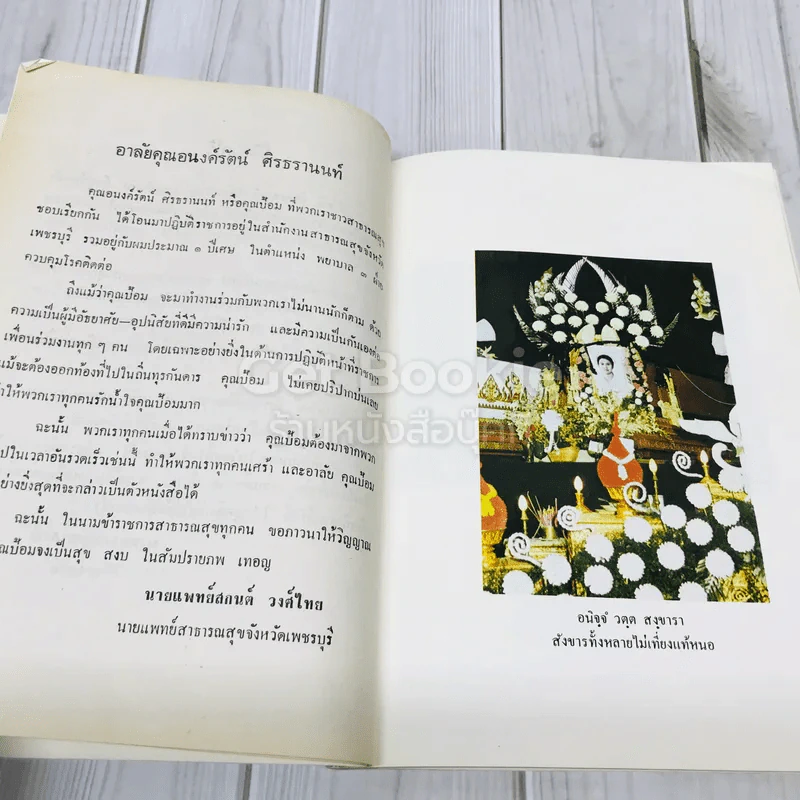 อาลัยคุณอนงค์รัตน์ ศิรธรานนท์
คุณอนงค์รัตน์ ศิรธรานนท์ หรือคุณป้อม ที่พวกเราชาวสาธารณสุข
ชอบเรียกกัน ได้โอนมาปฏิบัติราชการอยู่ในสำนักงานสาธารณสุขจังหวัด
เพชรบุรี รวมอยู่กับผมประมาณ ๑ ปีเศษ ในตำแหน่ง พยาบาล ๓ ฝ่าย
ควบคุมโรคติดต่อ
ถึงแม้ว่าคุณป้อม จะมาทำงานร่วมกับพวกเราไม่นานนักก็ตาม ด้วย
ความเป็นผู้มีอัธยาศัย–อุปนิสัยที่ดีมีความน่ารัก และมีความเป็นกันเองต่อ
เพื่อนร่วมงานทุก ๆ คน โดยเฉพาะอย่างยิ่งในด้านการปฏิบัติหน้าที่ราชการ
แม้จะต้องออกท้องที่ไปในถิ่นทุรกันดาร คุณป้อม ไม่เคยปริปากบ่นเลย
ทำให้พวกเราทุกคนรักน้ำใจคุณป้อมมาก
ฉะนั้น พวกเราทุกคนเมื่อได้ทราบข่าวว่า คุณป้อมต้องมาจากพวก
ไปในเวลาอันรวดเร็วเช่นนี้ ทำให้พวกเราทุกคนเศร้า และอาลัย คุณป้อม
อย่างยิ่งสุดที่จะกล่าวเป็นตัวหนังสือได้
ฉะนั้น ในนามข้าราชการสาธารณสุขทุกคน ขอภาวนาให้วิญญาณ
คุณป้อมจงเป็นสุข สงบ ในสัมปรายภพ เทอญ
นายแพทย์สกนต์ วงศ์ไทย
นายแพทย์สาธารณสุขจังหวัดเพชรบุรี
อนิจฺจํ วตฺต สงฺขารา
สังขารทั้งหลายไม่เที่ยงแท้หนอ
Get Booking
ร้านหนังสือบุ๊ก